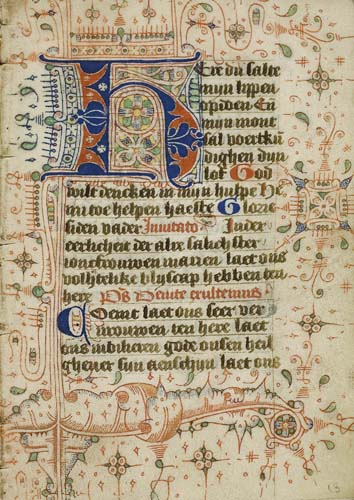 Here du salte
mijn lippen
opdoen En
mijn mont
sal voertkū
dighen dijn
lof God
wilt dencken in mijn hulpe He
mi te helpen haeste Glorie
siden vader Invitato In der
eerlicheit der alre salich ster
ioncfrouwen marien laet ons
volstelike blyscap hebben ten
here Ps Venite exultemus
Coemt laet ons seer ver
vrouwen ten here laet
ons iubileren gode onsen heil
ghever sijn aenschijn laet ons